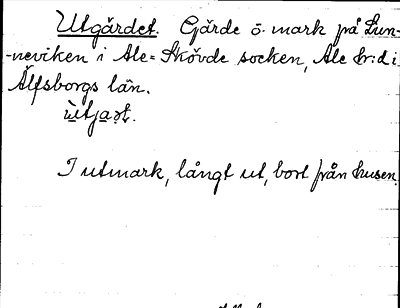 Utgärdet. Gärde o. mark på Sun-
-neviken i Ale-Skövde socken, Ale hr:d i
Älfsborgs län.
ùtjaṣt.
I utmark, långt ut, bort från husen.